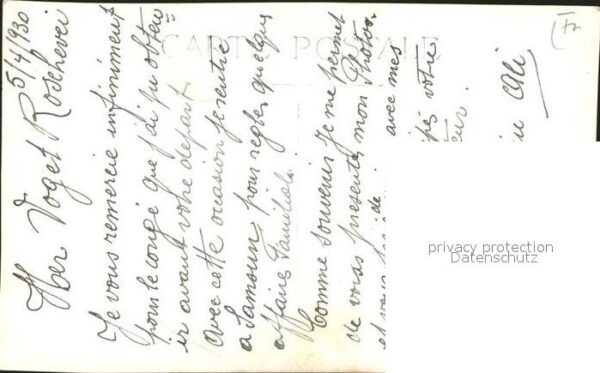 5/4/930
Her Voget Roschevei
Je vous remercie infiniment
pour le congé que j'ai pu obten
ir avant votre depart.
Avec cette occasion je rentre
a Samoun, pour regler quelques
affaires familiales.
Comme souvenir je me permet
de vous presenter mon Photo
et vous
avec mes
votre
Ali
CARTE POSTALE
privacy protection
Datenschutz